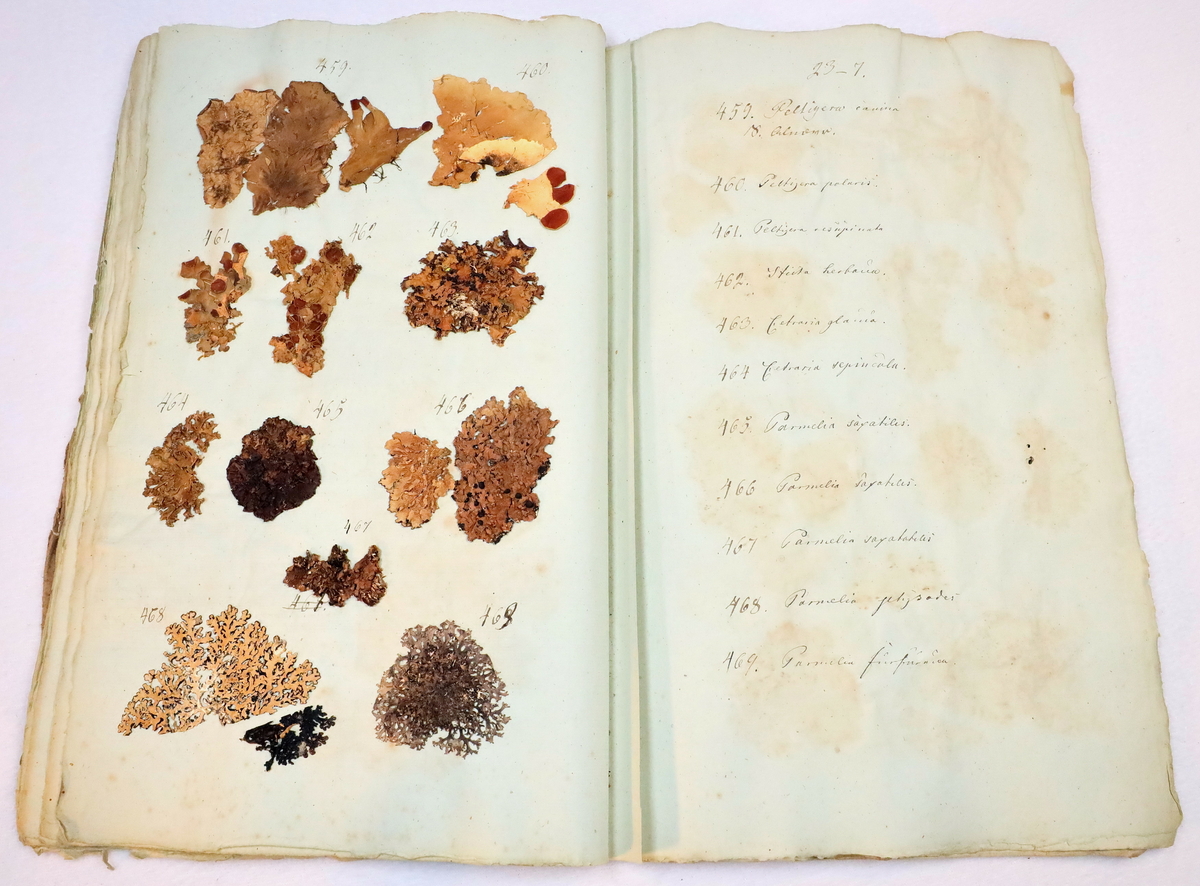 459.
460.
461.
462
463.
464
465
466
467
468
469
23-7.
459. Peltigera canina
460. Peltigera polaris.
461. Peltigera resupinata
462. Sticta herbacea.
463. Cetraria glauca.
464 Cetraria sepincola.
465. Parmelia saxatilis.
466 Parmelia saxatilis.
467 Parmelia
468. Parmelia physodes
469. Parmelia furfuracea.